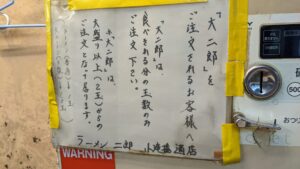 『大二郎』を
ご注文されるお客様へ
『大二郎』は、
食べきれる分の玉数のみ
ご注文下さい。
※『大二郎』は、
大盛り以上(2玉)からの
ご注文となって居ります。
ラーメン二郎 小滝橋通店
WARNING
500
おつり